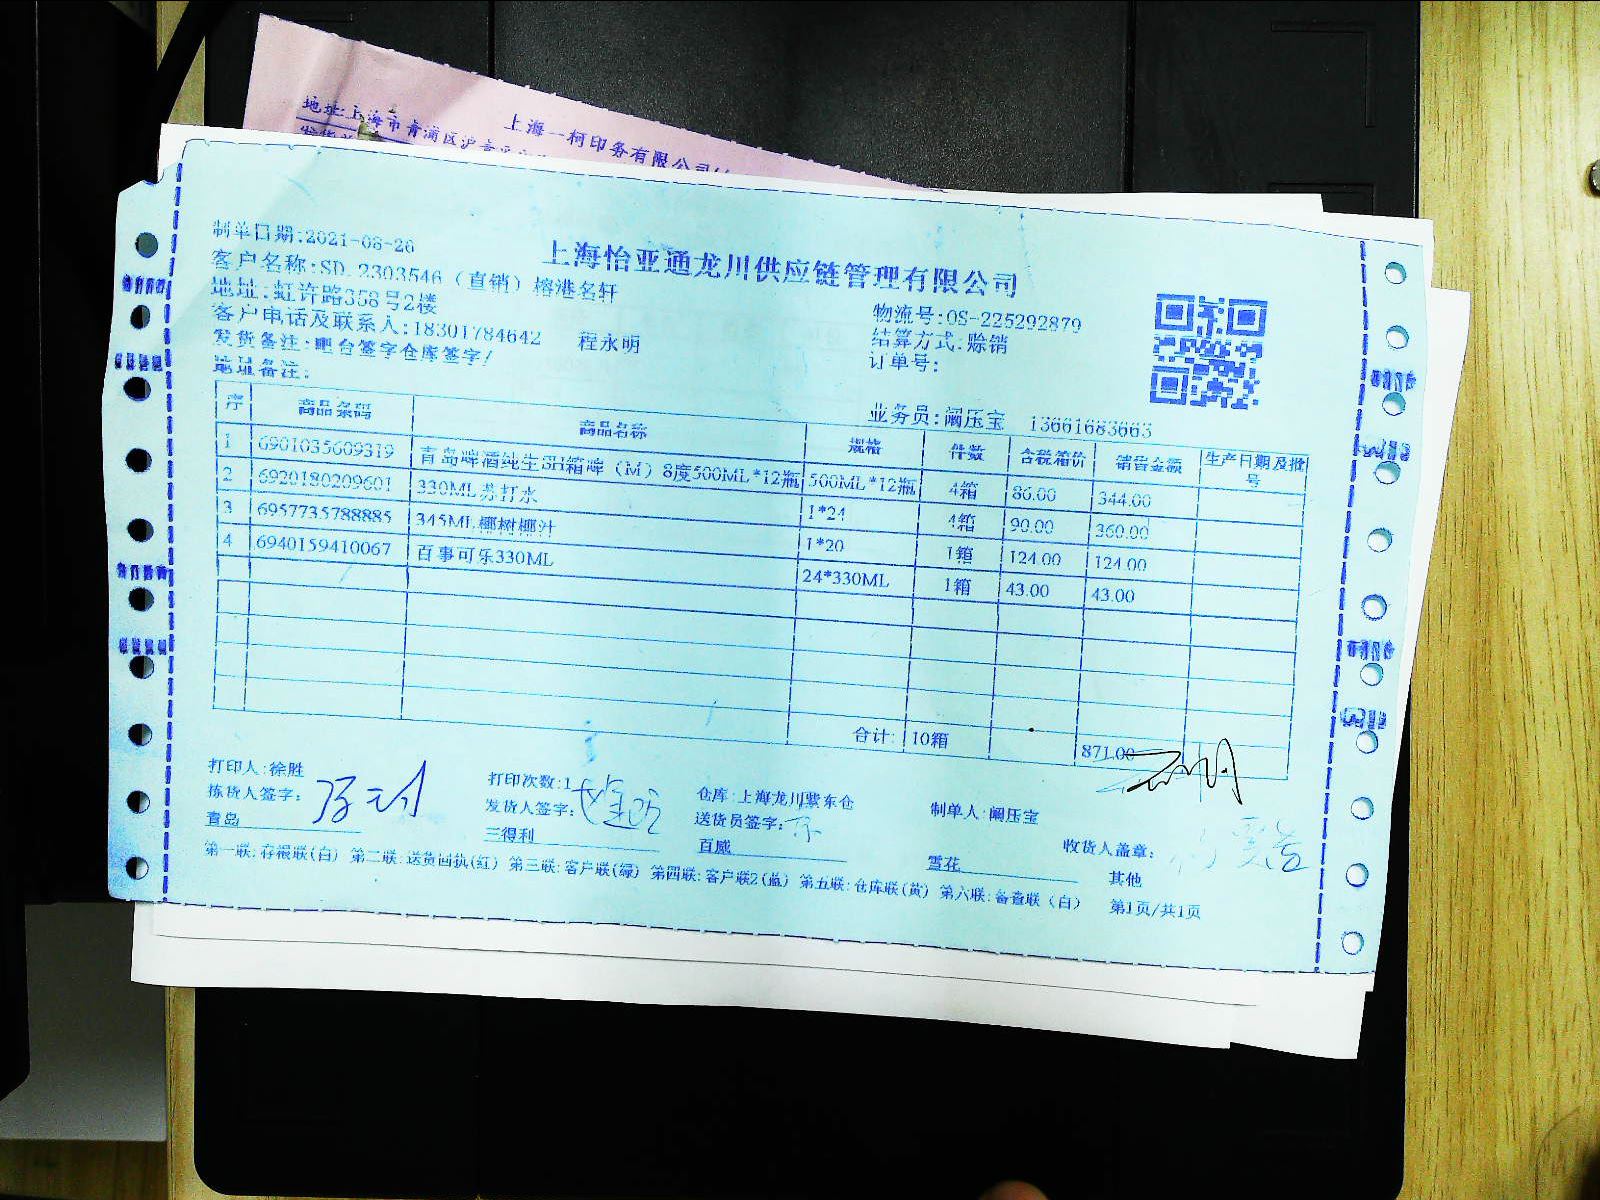 上海一柯印务有限公司
地址:上海市青浦区沪青平
上海怡亚通龙川供应链管理有限公司
制单日期:2021-08-26
客户名称:SD.2303546（直销）榕港名轩
地址:虹许路358号2楼
客户电话及联系人:18301784642 程永明
发货备注:吧台签字仓库签字/
地址备注:
物流号:OS-225292879
结算方式:赊销
订单号:
业务员:阚压宝 13661683663
序 商品条码 商品名称 规格 件数 含税箱价 销售金额 生产日期及批号
1 6901035609319 青岛啤酒纯生SH箱啤（M）8度500ML*12瓶 500ML*12瓶 4箱 86.00 344.00
2 6920180209601 330ML苏打水 1*24 4箱 90.00 360.00
3 6957735788885 345ML椰树椰汁 1*20 1箱 124.00 124.00
4 6940159410067 百事可乐330ML 24*330ML 1箱 43.00 43.00
合计: 10箱 871.00
打印人:徐胜 打印次数:1 仓库:上海龙川紫东仓 制单人:阚压宝
拣货人签字: 发货人签字: 送货员签字: 收货人盖章:
青岛 三得利 百威 雪花 其他
第一联:存根联(白) 第二联:送货回执(红) 第三联:客户联(绿) 第四联:客户联2(蓝) 第五联:仓库联(黄) 第六联:备查联(白) 第1页/共1页